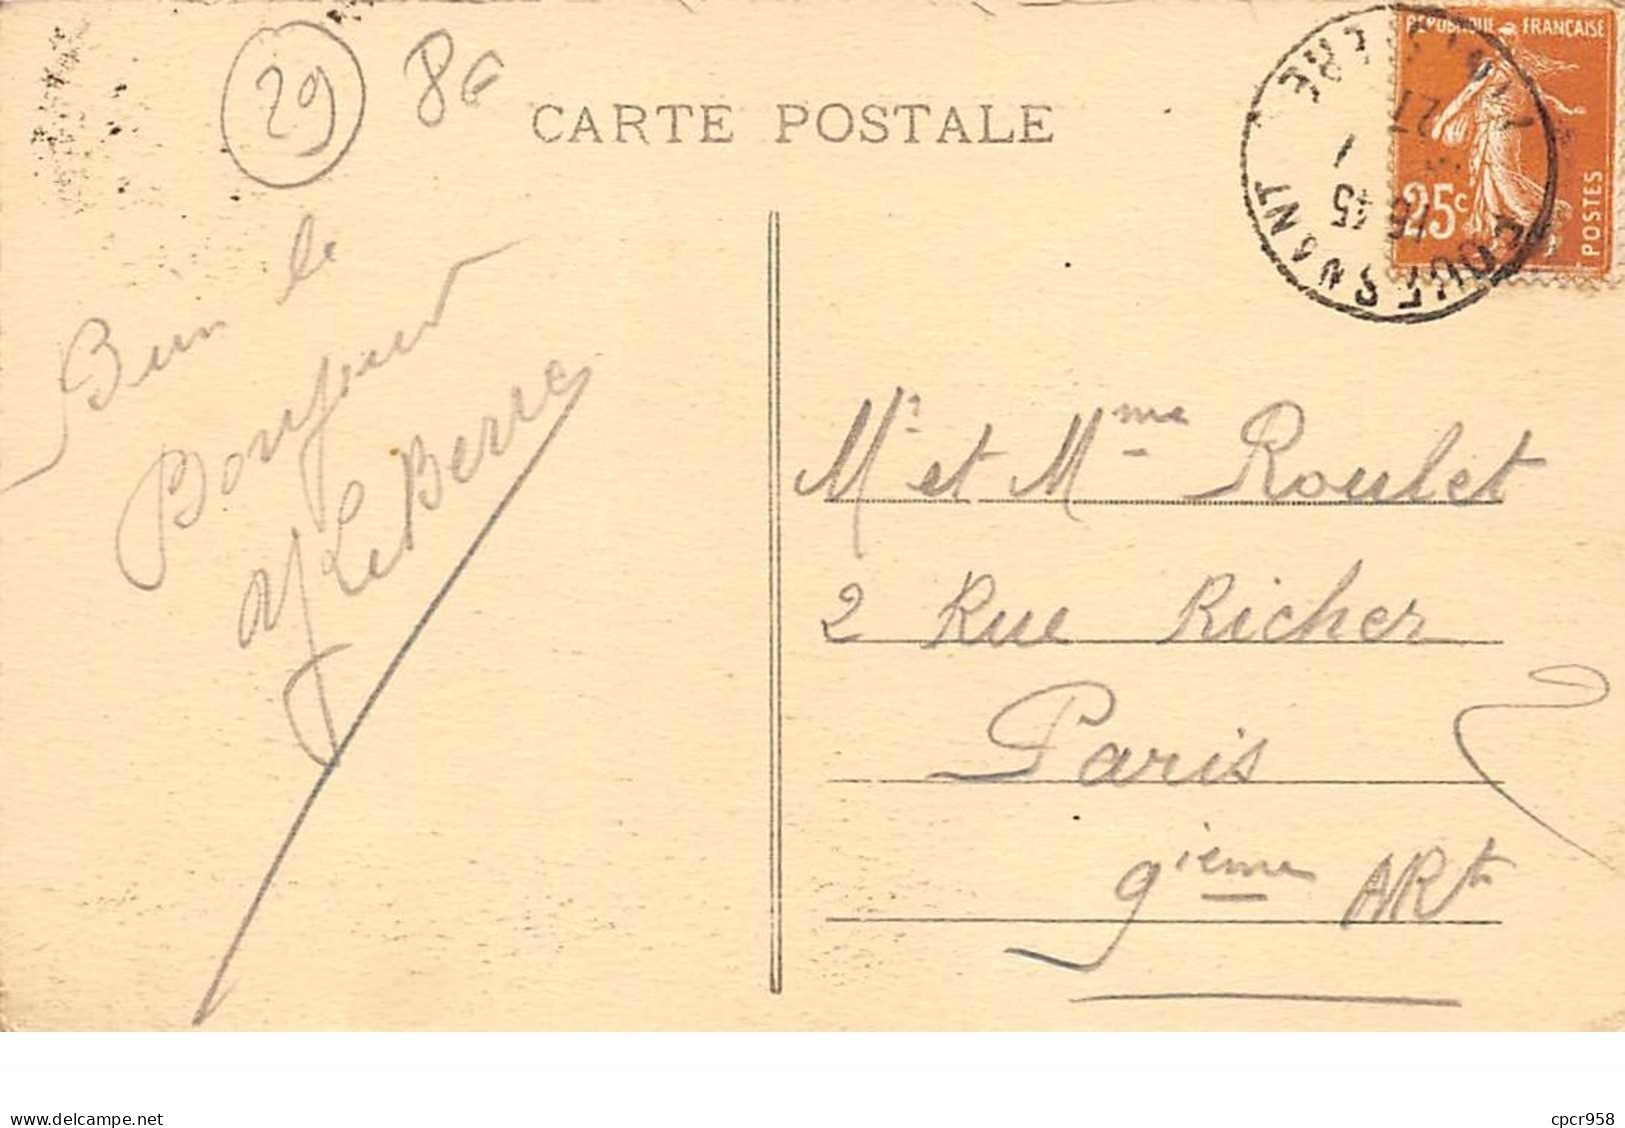 29 86
CARTE POSTALE
RÉPUBLIQUE FRANÇAISE
25c
POSTES
15 45
27
Bien le
Bonjour
Le Berre
Mr et Mme Roulet
2 Rue Richer
Paris
9ième ARt
delcampe.net
cpcr958